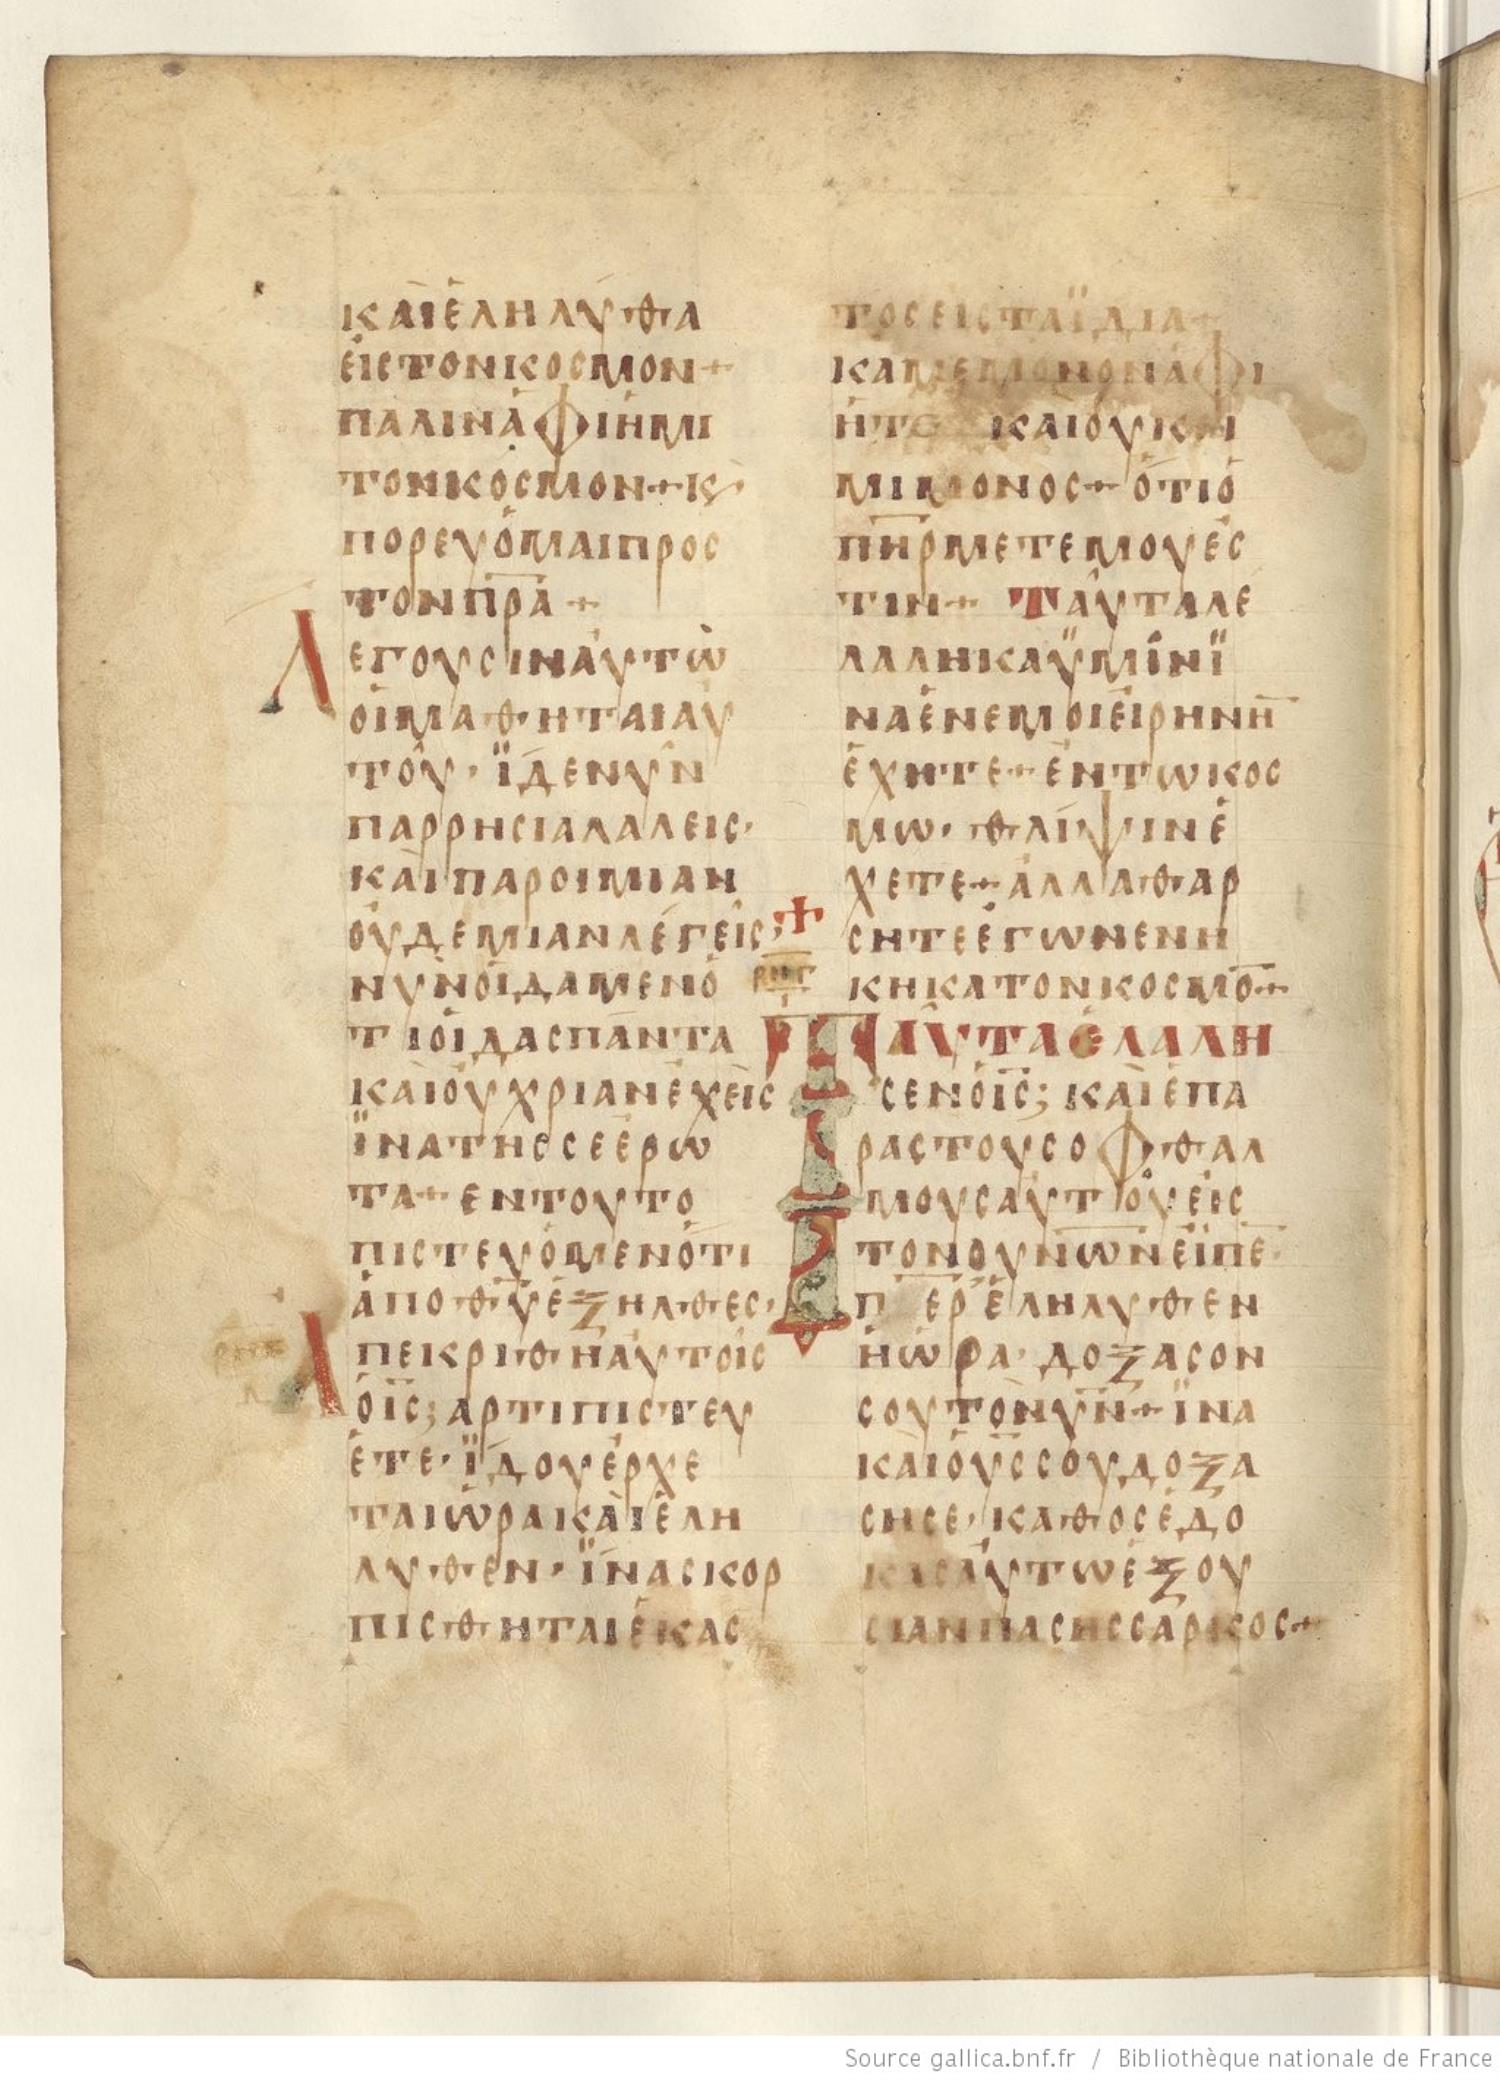 ΚΑΙΕΛΗΛΥΘΑ
ΕΙΣΤΟΝΚΟΣΜΟΝ+
ΠΑΛΙΝΑΦΙΗΜΙ
ΤΟΝΚΟΣΜΟΝ+Κς
ΠΟΡΕΥΟΜΑΙΠΡΟΣ
ΤΟΝΠΡΑ+
ΛΕΓΟΥΣΙΝΑΥΤΩ
ΟΙΜΑΘΗΤΑΙΑΥ
ΤΟΥ·ΪΔΕΝΥΝ
ΠΑΡΡΗΣΙΑΛΑΛΕΙΣ·
ΚΑΙΠΑΡΟΙΜΙΑΝ
ΟΥΔΕΜΙΑΝΛΕΓΕΙΣ·
ΝΥΝΟΙΔΑΜΕΝΟ
ΤΙΟΙΔΑΣΠΑΝΤΑ
ΚΑΙΟΥΧΡΙΑΝΕΧΕΙΣ
ΪΝΑΤΗΣΣΕΕΡΩ
ΤΑ+ΕΝΤΟΥΤΟ
ΠΙΣΤΕΥΟΜΕΝΟΤΙ
ΑΠΟΘΥΕΞΗΛΘΕΣ·
ΑΠΕΚΡΙΘΗΑΥΤΟΙΣ
ΟΙΣ;ΑΡΤΙΠΙΣΤΕΥ
ΕΤΕ·ΪΔΟΥΕΡΧΕ
ΤΑΙΩΡΑΚΑΙΕΛΗ
ΛΥΘΕΝ·ΪΝΑΣΚΟΡ
ΠΙΣΘΗΤΑΙΕΚΑΣ
ΤΟΣΕΙΣΤΑΪΔΙΑ+
ΚΑΜΕΜΟΝΟΝΑΦΙ
ΗΤΕ ΚΑΙΟΥΚΕΙ
ΜΙΜΟΝΟΣ+ΟΤΙΟ
ΠΗΡΜΕΤΕΜΟΥΕΣ
ΤΙΝ+ ΤΑΥΤΑΛΕ
ΛΑΛΗΚΑΫΜΙΝΪ
ΝΑΕΝΕΜΟΙΕΙΡΗΝΗ
ΕΧΗΤΕ+ΕΝΤΩΚΟΣ
ΜΩ·ΘΛΙΨΙΝΕ
ΧΕΤΕ+ΑΛΛΑΘΑΡ
ΣΗΤΕΕΓΩΝΕΝΗ
ΚΗΚΑΤΟΝΚΟΣΜΟ+
+
ΤΑΥΤΑΕΛΑΛΗ
ΣΕΝΟΙΣ;ΚΑΙΕΠΑ
ΡΑΣΤΟΥΣΟΦΘΑΛ
ΜΟΥΣΑΥΤΟΥΕΙΣ
ΤΟΝΟΥΝΩΝΕΙΠΕ·
Π ΕΡΕΛΗΛΥΘΕΝ
ΗΩΡΑ·ΔΟΞΑΣΟΝ
ΣΟΥΤΟΝΥΝ+ΪΝΑ
ΚΑΙΟΥΣΣΟΥΔΟΞΑ
ΣΗΣΕ·ΚΑΘΟΣΕΔΟ
ΚΑΣΑΥΤΩΕΞΟΥ
ΣΙΑΝΠΑΣΗΣΣΑΡΚΟΣ+
Source gallica.bnf.fr / Bibliothèque nationale de France